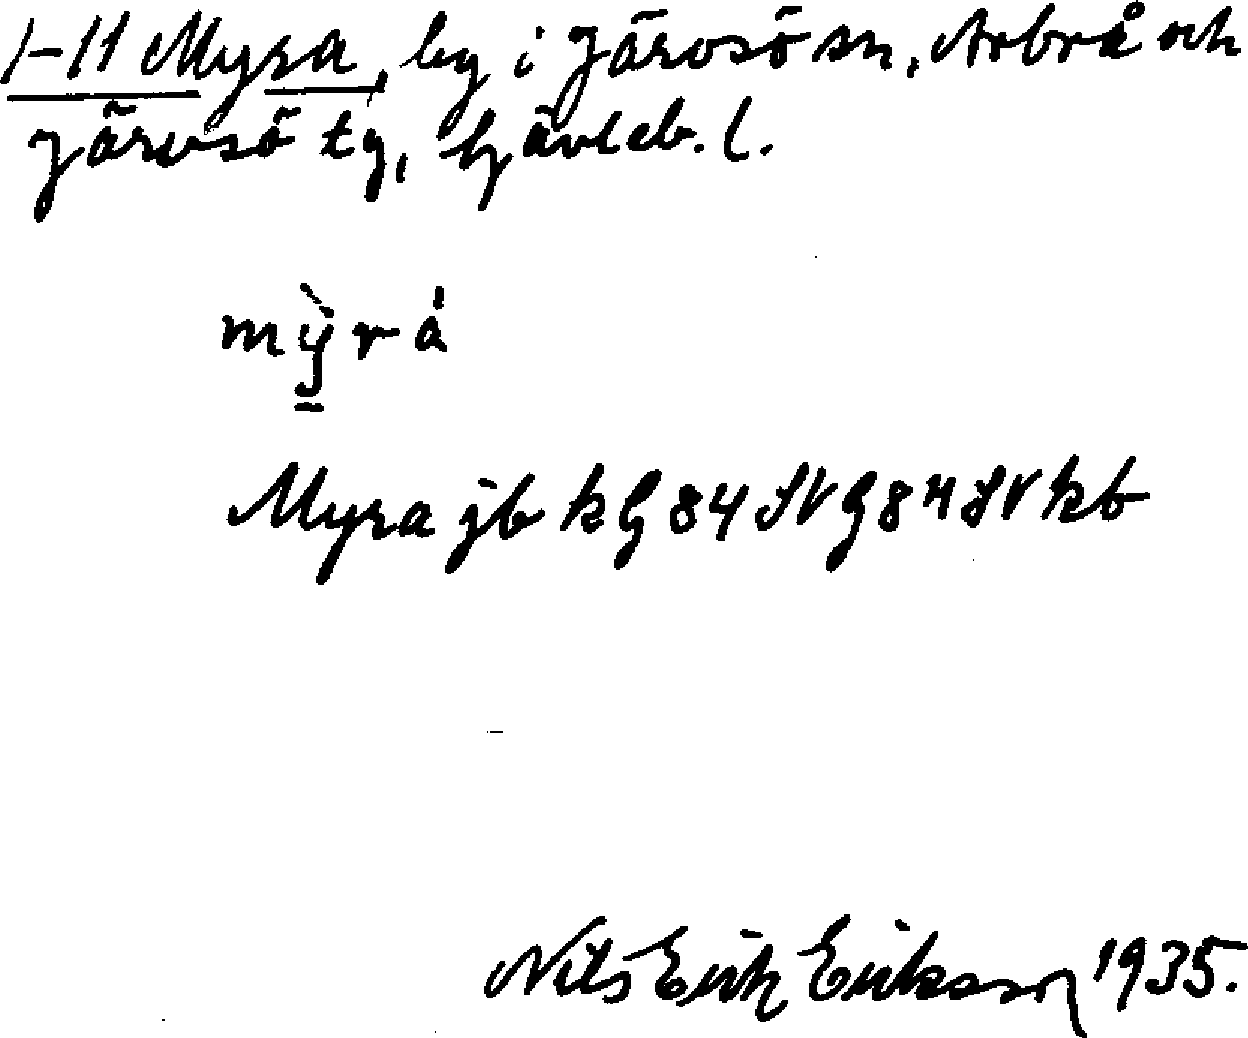 1-11 Myra, by i Järvsö sn, Arbrå och
Järvsö tg, Gävleb. l.
mỳ̱rá
Myra jb k G 84 SV G 84 SV kb
Nils Erik Eriksson 1935.